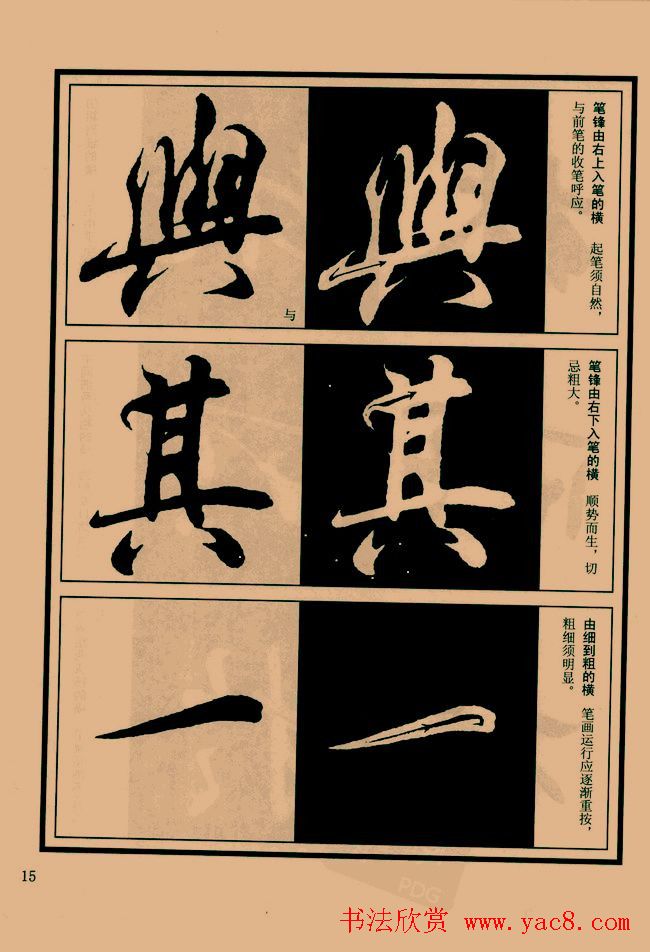 笔锋由右上入笔的横　起笔须自然，
与前笔的收笔呼应。
與
與
与
笔锋由右下入笔的横　顺势而生，切
忌粗大。
其
其
由细到粗的横　笔画运行应逐渐重按，
粗细须明显。
一
一
15
PDG
书法欣赏 www.yac8.com